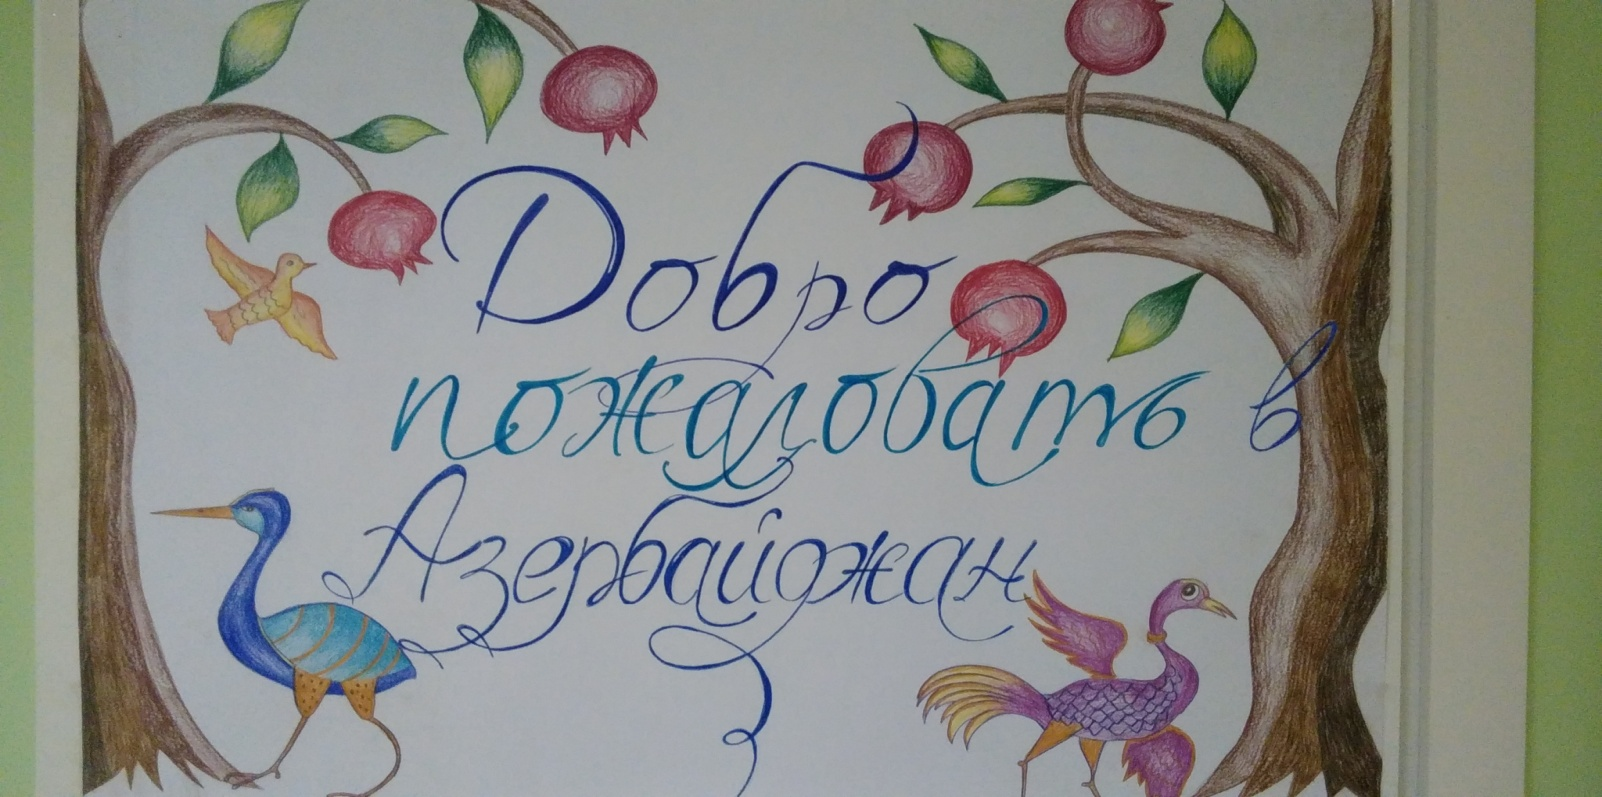 Добро
пожаловать в
Азербайджан